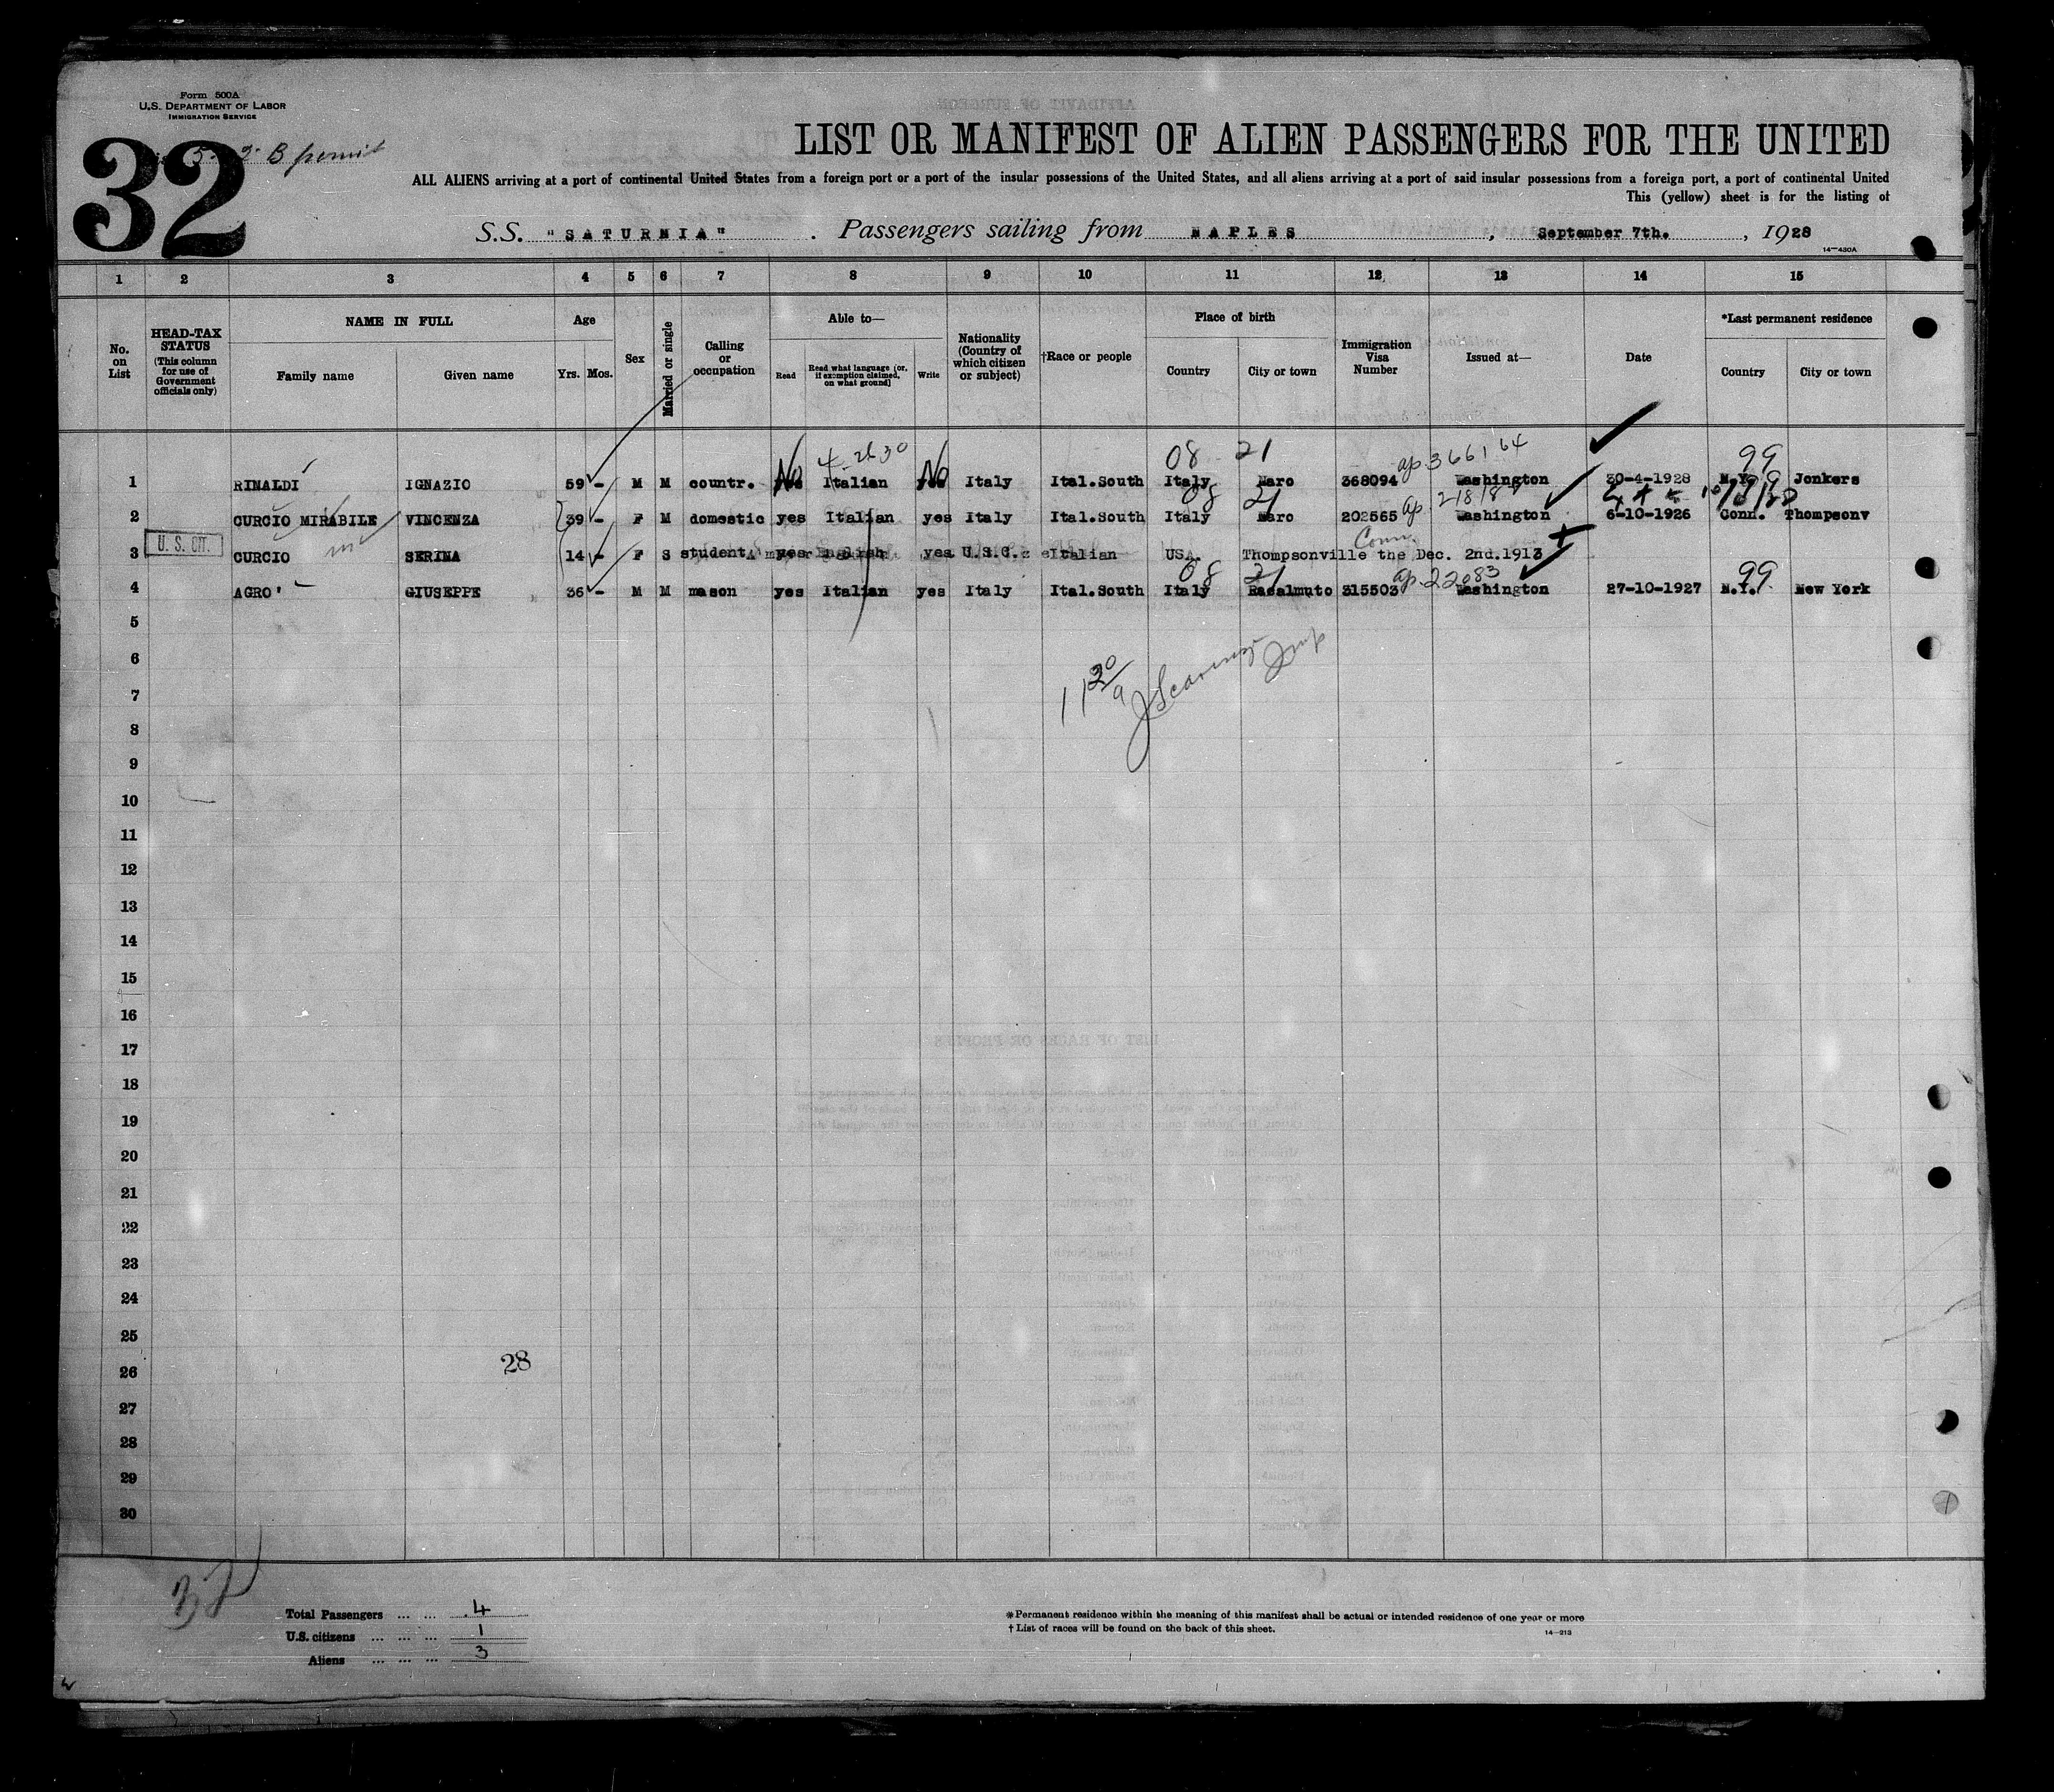 Form 500A
U.S. DEPARTMENT OF LABOR
IMMIGRATION SERVICE
32
B permit
LIST OR MANIFEST OF ALIEN PASSENGERS FOR THE UNITED
ALL ALIENS arriving at a port of continental United States from a foreign port or a port of the insular possessions of the United States, and all aliens arriving at a port of said insular possessions from a foreign port, a port of continental United
This (yellow) sheet is for the listing of
S.S. "SATURNIA" . Passengers sailing from NAPLES , September 7th. , 1928
14—430A
1 2 3 4 5 6 7 8 9 10 11 12 13 14 15
No. on List
HEAD-TAX STATUS (This column for use of Government officials only)
NAME IN FULL
Family name Given name
Age
Yrs. Mos.
Sex
Married or single
Calling or occupation
Able to—
Read
Read what language (or, if exemption claimed, on what ground)
Write
Nationality (Country of which citizen or subject)
†Race or people
Place of birth
Country City or town
Immigration Visa Number
Issued at—
Date
*Last permanent residence
Country City or town
4-2630 08 21 ap 366164 99
1 RINALDI IGNAZIO 59 - M M countr. No Italian No Italy Ital.South Italy Naro 368094 Washington 30-4-1928 N.Y. Jonkers
08 21 ap. 10/9/28
2 CURCIO MIRABILE VINCENZA 39 - F M domestic yes Italian yes Italy Ital.South Italy Naro 202565 Washington 6-10-1926 Conn. Thompsonv
U. S. CIT.
Conn.
3 CURCIO SERINA 14 - F S student yes English yes U.S.C. Italian USA. Thompsonville the Dec. 2nd.1913
08 21 ap. 22083 99
4 AGRO' GIUSEPPE 36 - M M mason yes Italian yes Italy Ital.South Italy Racalmuto 315503 Washington 27-10-1927 N.Y. New York
5
6
7
8
9
10
11
12
13
14
15
16
17
18
19
20
21
22
23
24
25
28
26
27
28
29
30
32
Total Passengers ... ... 4
U.S. citizens ... ... ... 1
Aliens ... ... ... 3
*Permanent residence within the meaning of this manifest shall be actual or intended residence of one year or more
† List of races will be found on the back of this sheet.
14—213